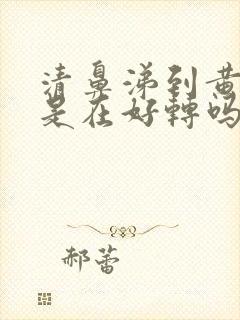 清鼻涕到黄
是在好轉吗
郝蕾